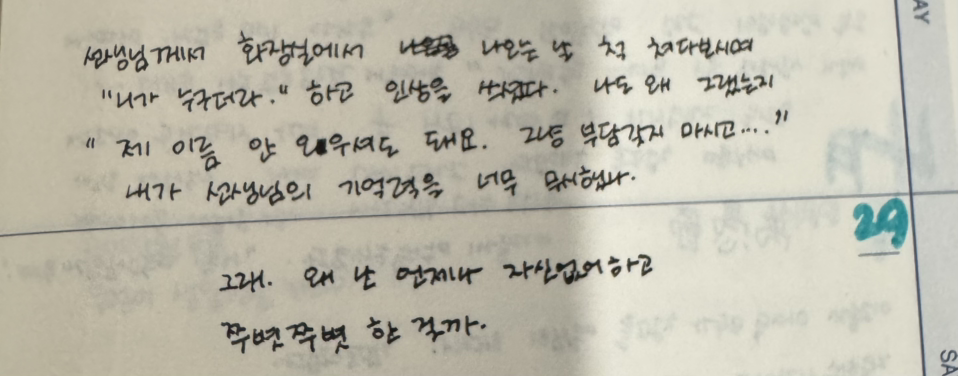 선생님께서 화장실에서 나오는 날 척 쳐다보시며
"니가 누구더라." 하고 인상을 쓰셨다. 나도 왜 그랬는지
"제 이름 안 외우셔도 돼요. 그냥 부담갖지 마시고...."
내가 선생님의 기억력을 너무 무시했나.
29
그래. 왜 난 언제나 자신없어하고
쭈볏쭈볏 한 걸까.
AY
SA